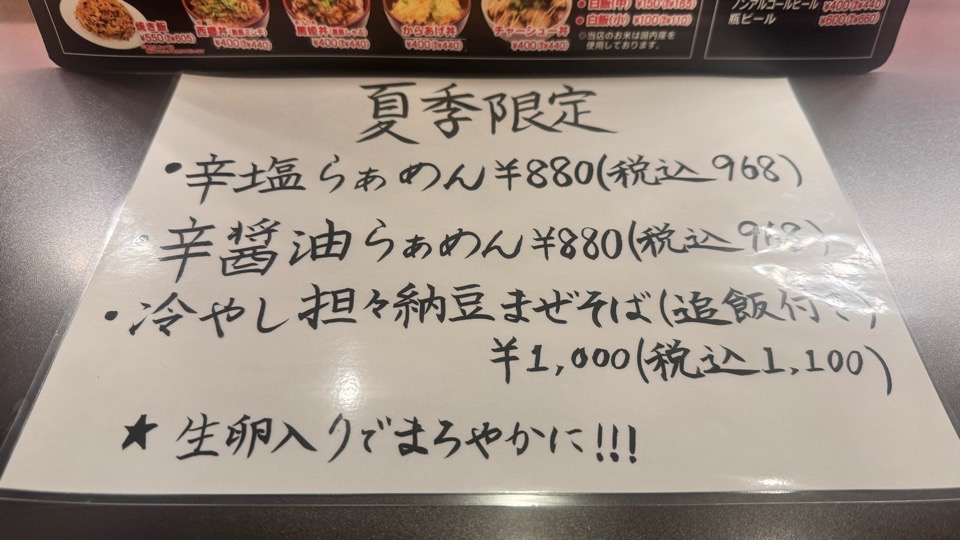 焼き飯
¥550(¥605)
¥400(¥440)
¥400(¥440)
からあげ丼
¥400(¥440)
チャーシュー丼
¥400(¥440)
●白飯(中) ¥150(¥165)
●白飯(小) ¥100(¥110)
※当店のお米は国内産を
使用しております。
ノンアルコールビール ¥400(¥440)
瓶ビール ¥600(¥660)
夏季限定
・辛塩らぁめん¥880(税込968)
・辛醤油らぁめん¥880(税込968)
・冷やし担々納豆まぜそば(追飯付き)
¥1,000(税込1,100)
★生卵入りでまろやかに!!!